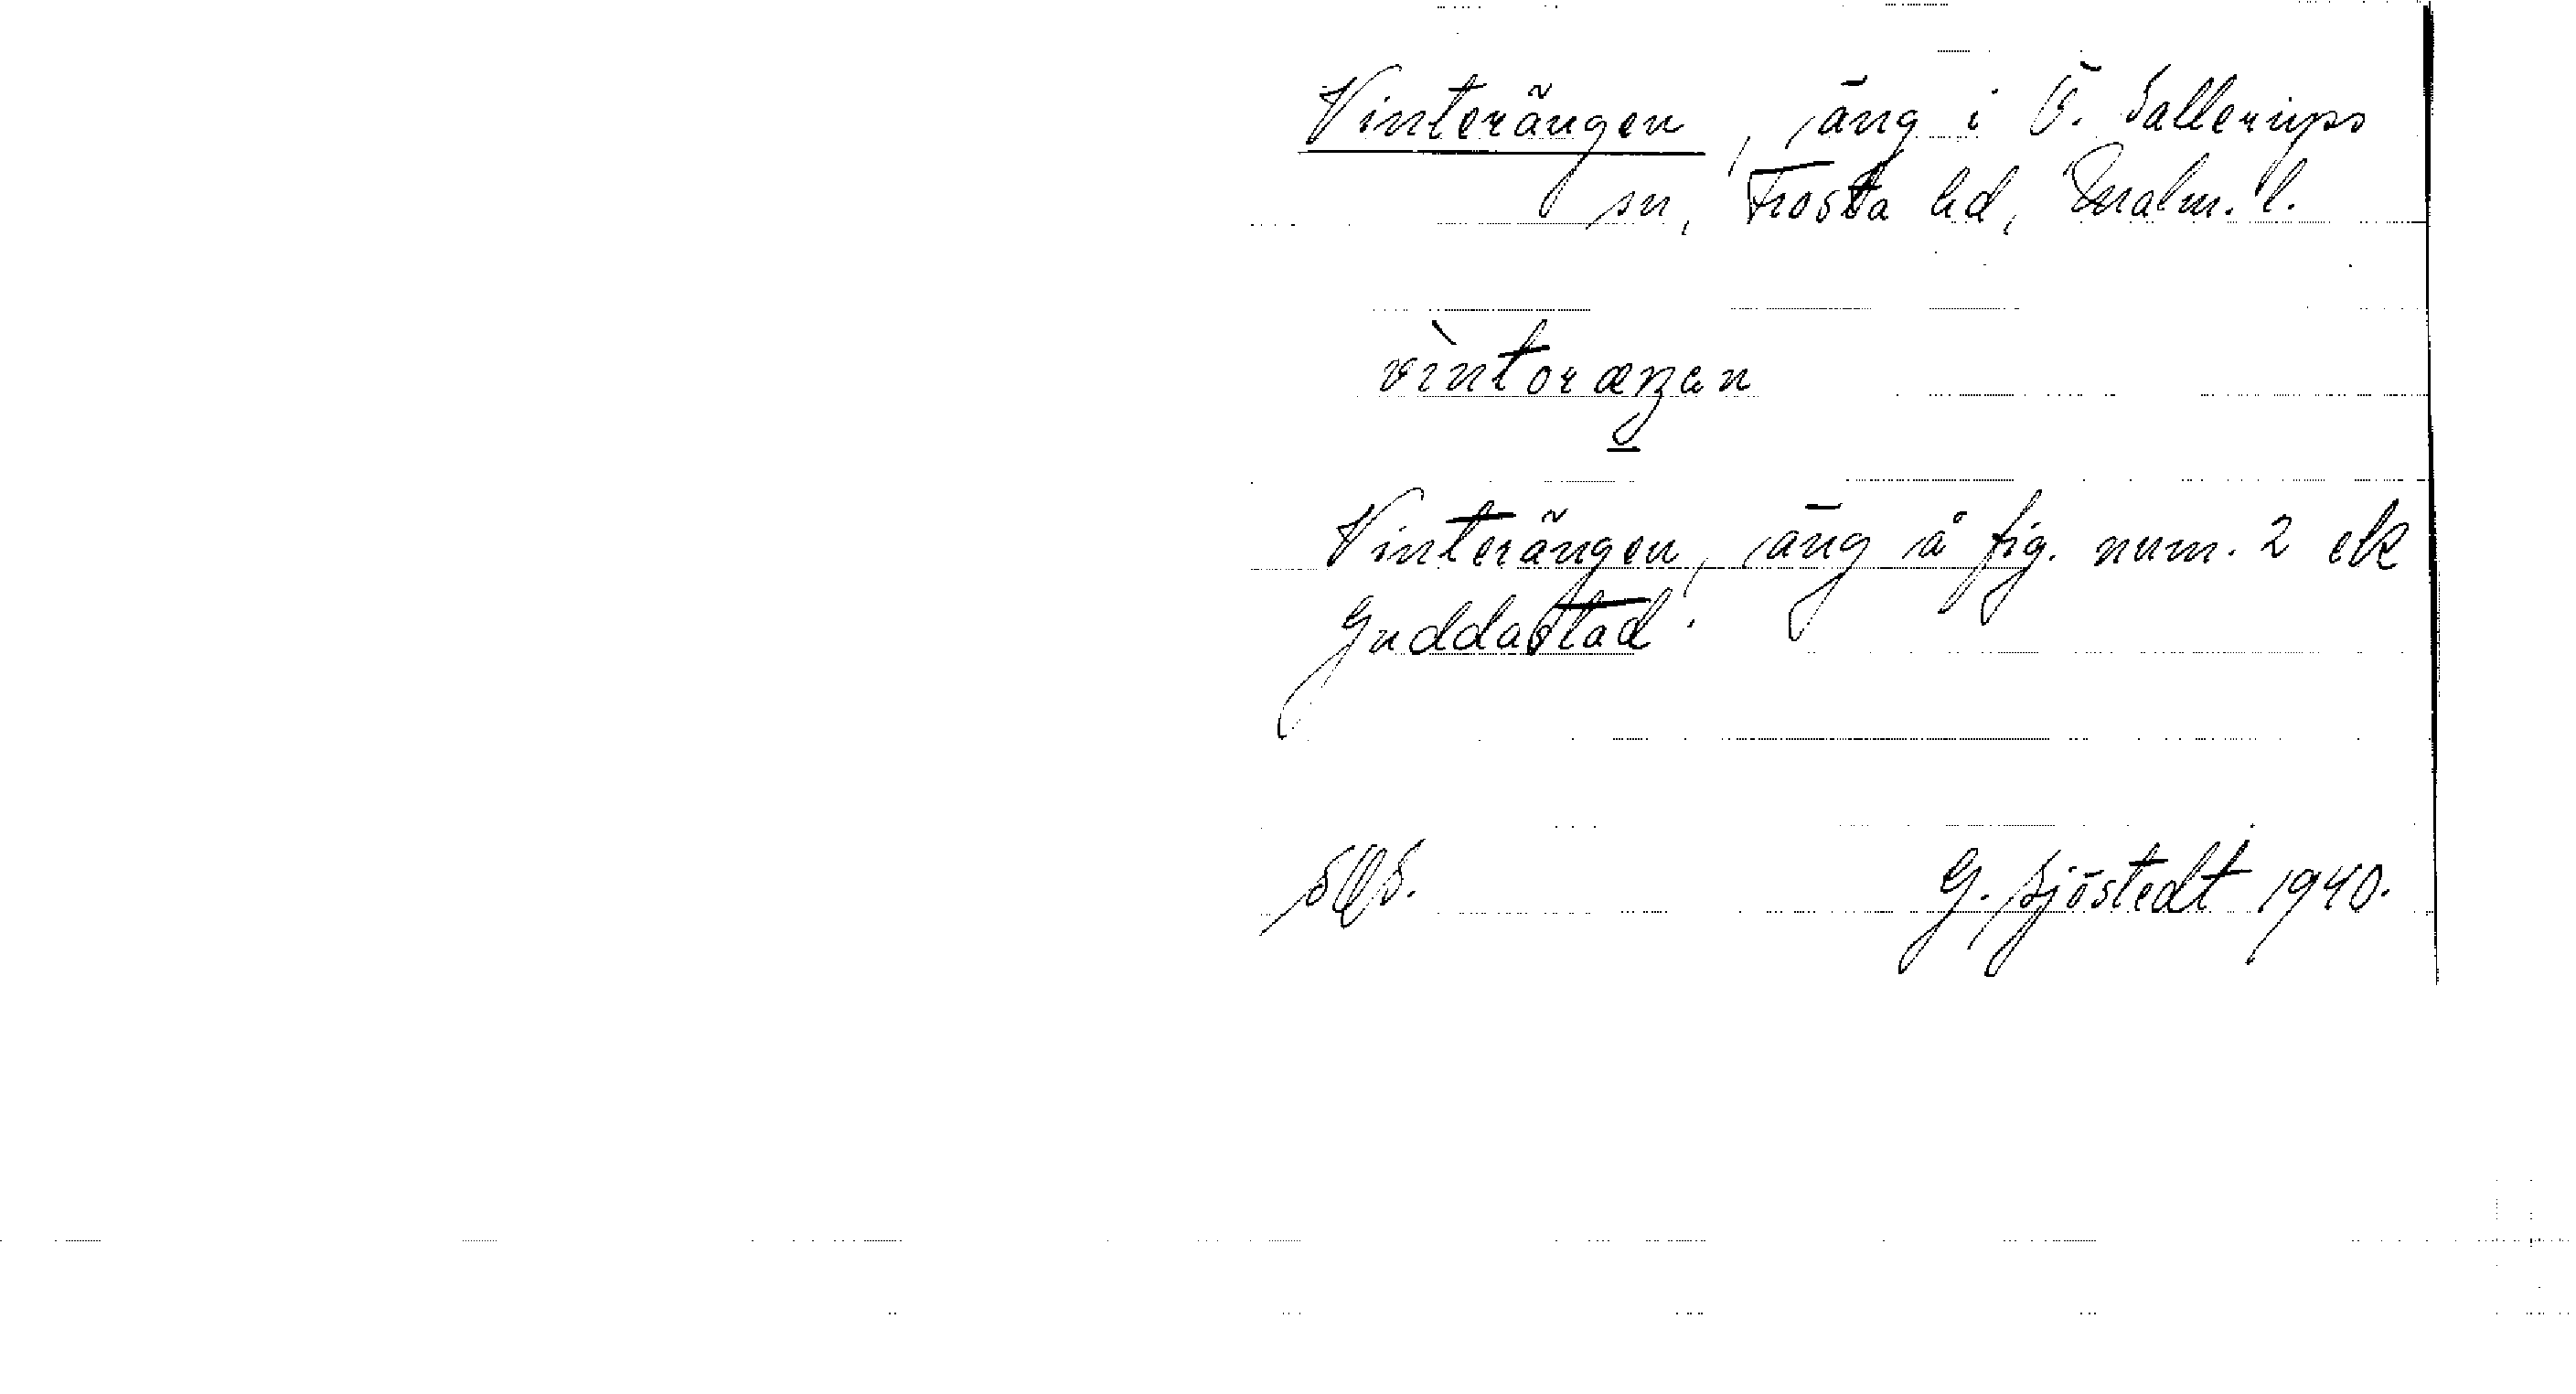 Vinterängen, äng i Ö. Sallerups
sn, Frosta hd, Malm. l.
vìntoræŋen
Vinterängen, äng å fig. num. 2 ek
Guddastad.
G. Sjöstedt 1940.